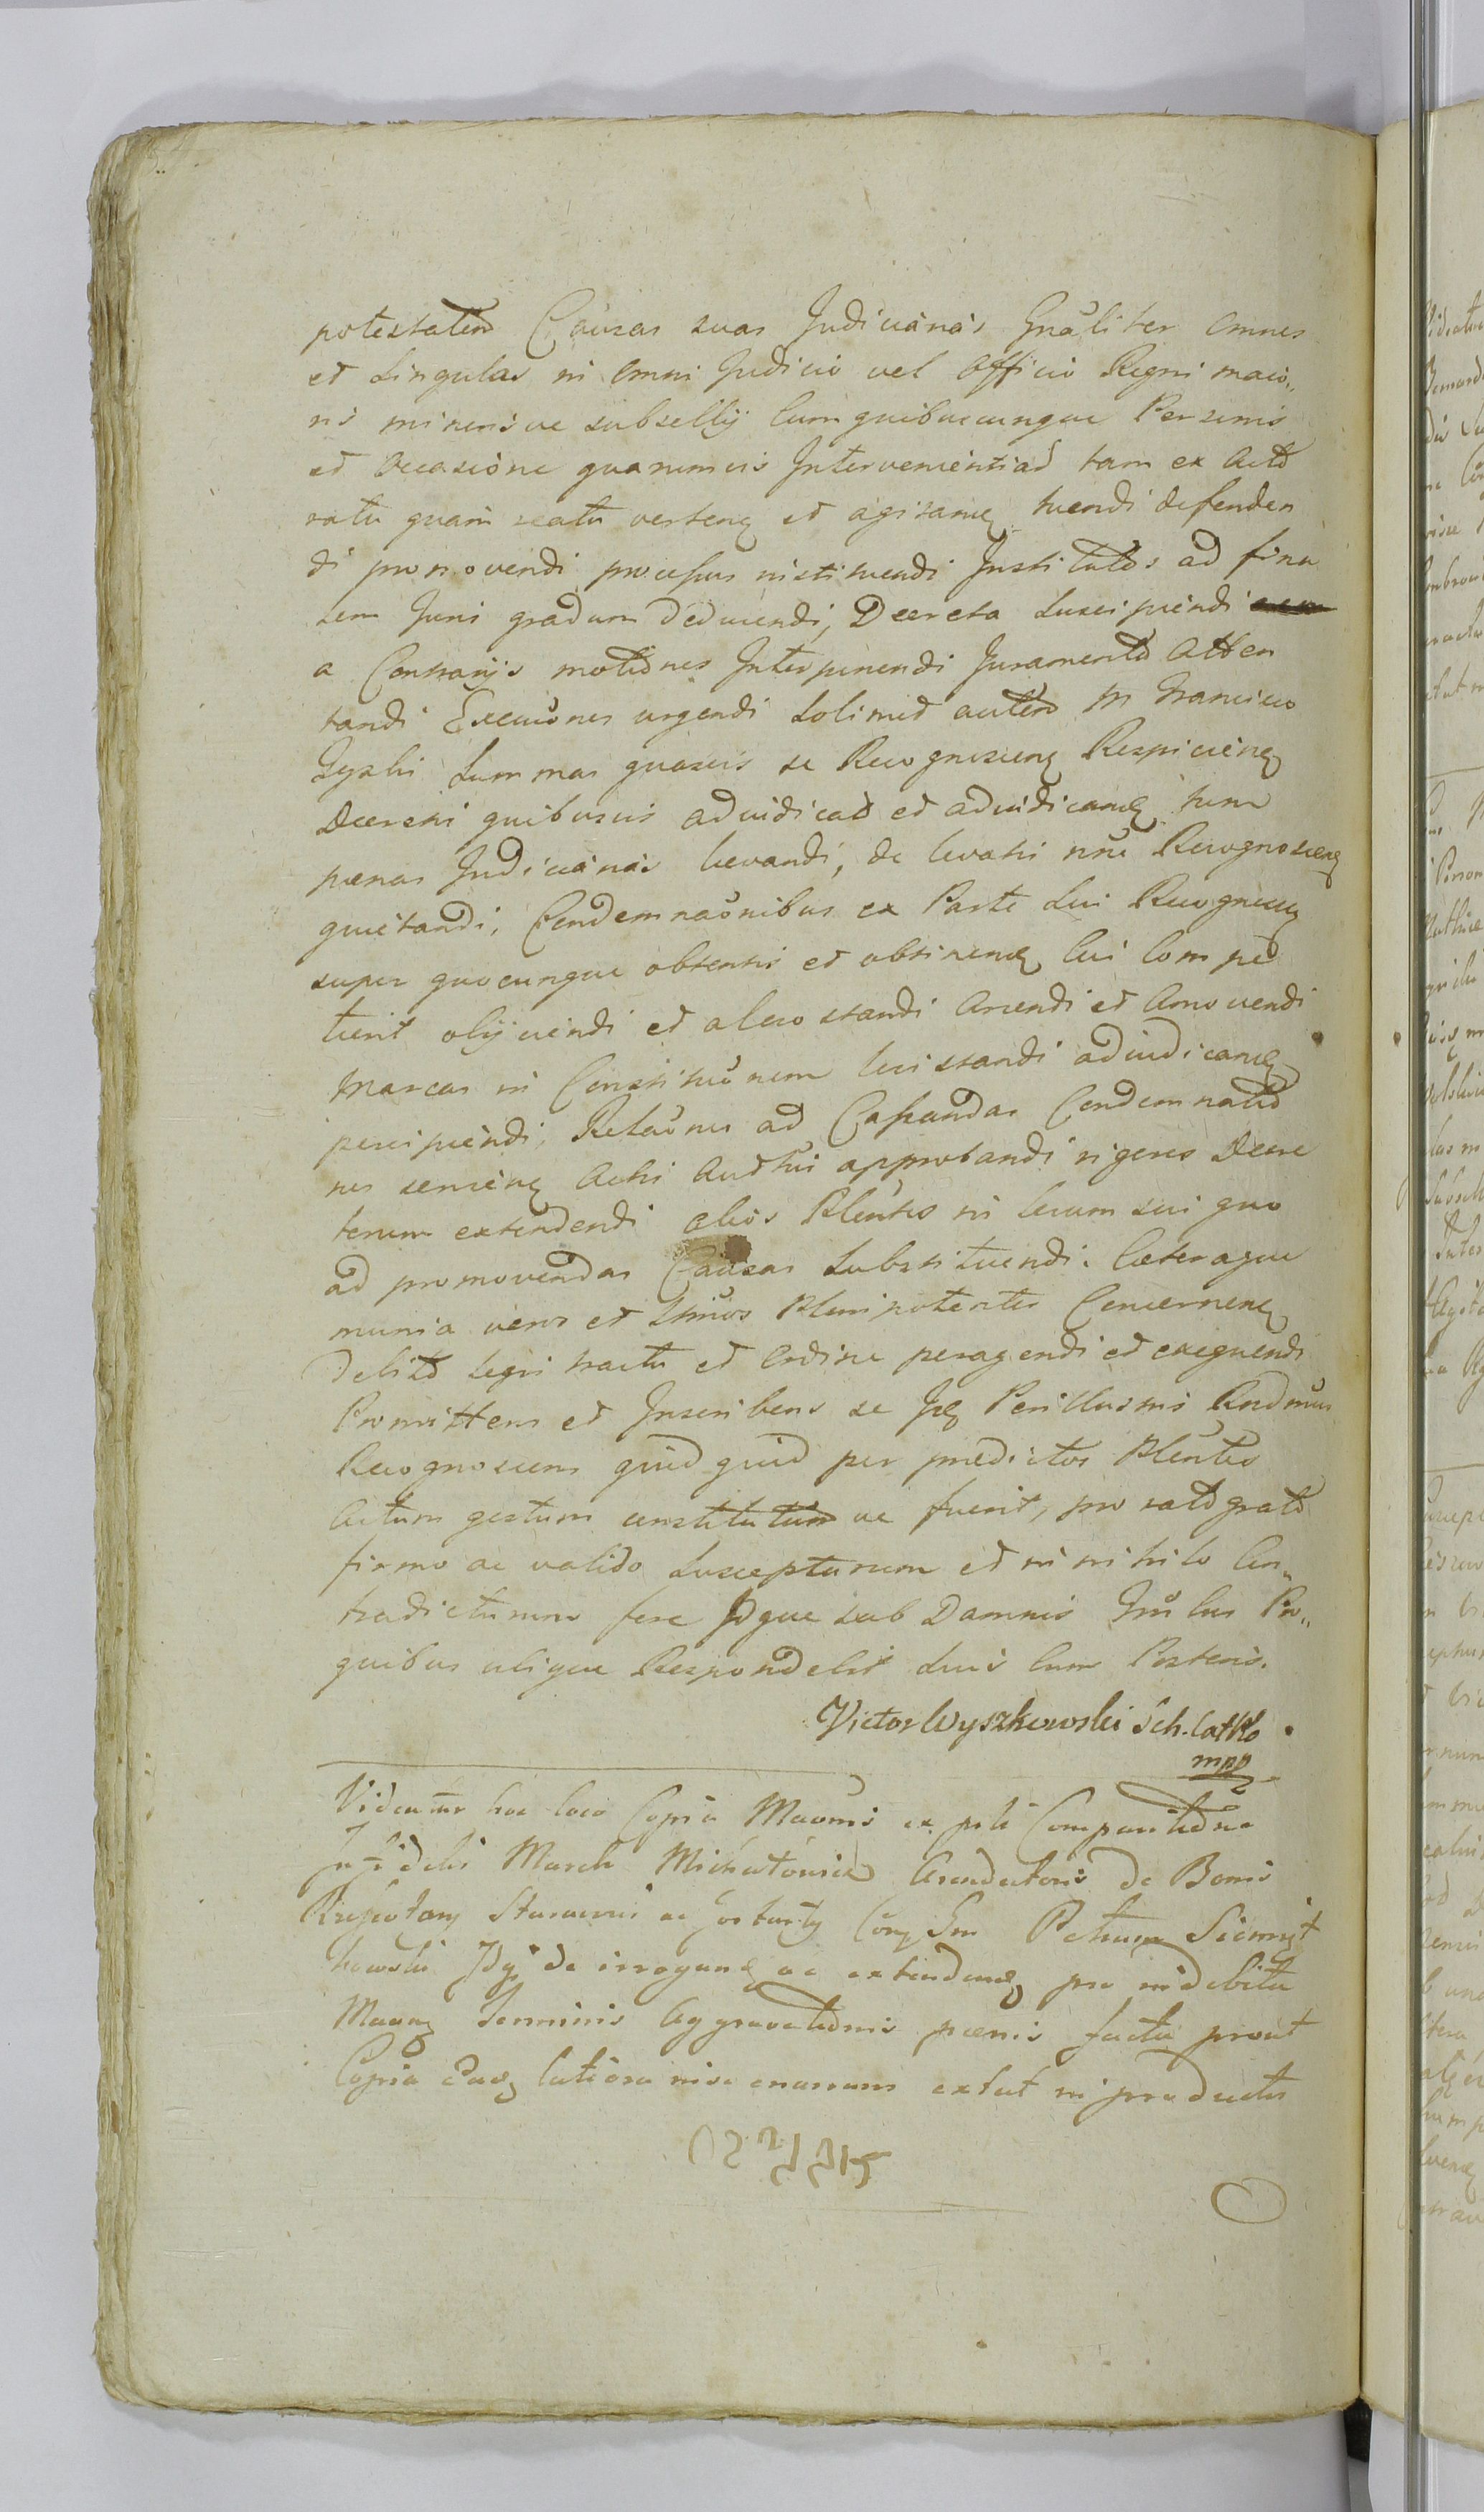 potestatem Causas suas Judiciarias Gnaliter omnes
et singulas in omni Judicio vel Officio Regni maio„
ris minorisve subsellij cum quibuscunque Personis
et occasione quarumvis Intervenientiad tam ex Acto
ratu quam reatu verteñ et agitanđ tuendi defenden
di promovendi processus instituendi Institutos ad fina
lem Juris gradum deducendi, Decreta suscipiendi
a Contrarijs motiones Interponendi Juramento Atten
tandi Execuōnes urgendi solimet autem M Francisco
summas quasvis se Recognoscenđ Respicienđ
Decretis quibusvis adiudicat et adiudicanđ tum
pœnas Judiciarias levandi, de levatis nrē Recognoscenđ
quietandi, Condemnaōnibus ex Parte sui Recogncenđ
super quocunque obtentis et obtinenđ cui Compe
tierit olijciendi et aleostandi Arcendi et Amovendi
Marcas in Constituōnem levistandi adiudicanđ
percipiendi, Relaōnes ad Cassandas Condemnatio
nes servienđ Actis Authis approbandi rigores Decre
torum extendendi alios Plēntes in locum sui quo
ad promovendas Causas substituendi. Cæteraque
munia veros et Ltimos Plenipotentes Concernenđ
Debito legis tractu et ordine peragendi et exequendi
Promittens et Inscribens se Jđ Perillusmis Rndmus
Recognoscens quidquid per prædictos Plēntes
Actum gestum constitutum ve fuerit, pro rato grato
firmo ac valido suscepturum et in nihilo Con„
tradicturum fore Idque sub Damnis Trrīs cus Pro„
quibus ubique Respondebit suis cum Posteris.
Victor Wyszkowski Sch. Catho
mpp
Videatur hoc loco Copia Maonis ex pte Comparitiōne
Infidelis March Michałowicz Arendatoris de Bonis
ac Conđ Petrum Siemiąt
kowski Idq de irroganđ ac extendenđ pro indebita
Maonđ Terminis Aggravationis pœnis facta prout
Copia eađ latiora in se enarrans extat in productis